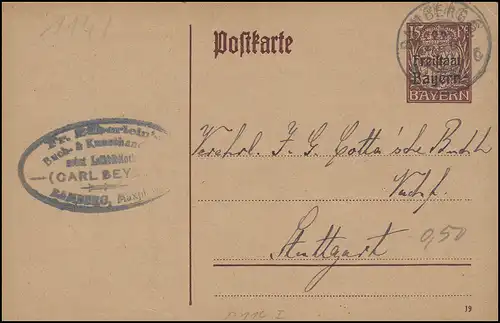 1141
Postkarte
BAMBERG
15 Pf
Freistaat
Bayern
BAYERN
Fr. Züberlein's
Buch- & Kunsthan
nebst Leihbiblioth
(CARL BEY
BAMBERG, Maxpl
Verehrl. J. G. Cotta'sche Buchh
Nachf.
Stuttgart
0,50
P 116 I
19